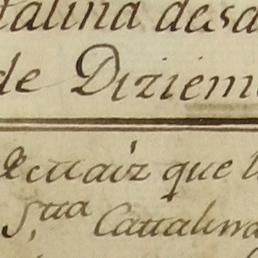 talina desa
de Diziem
que l
S.tta Cattalina